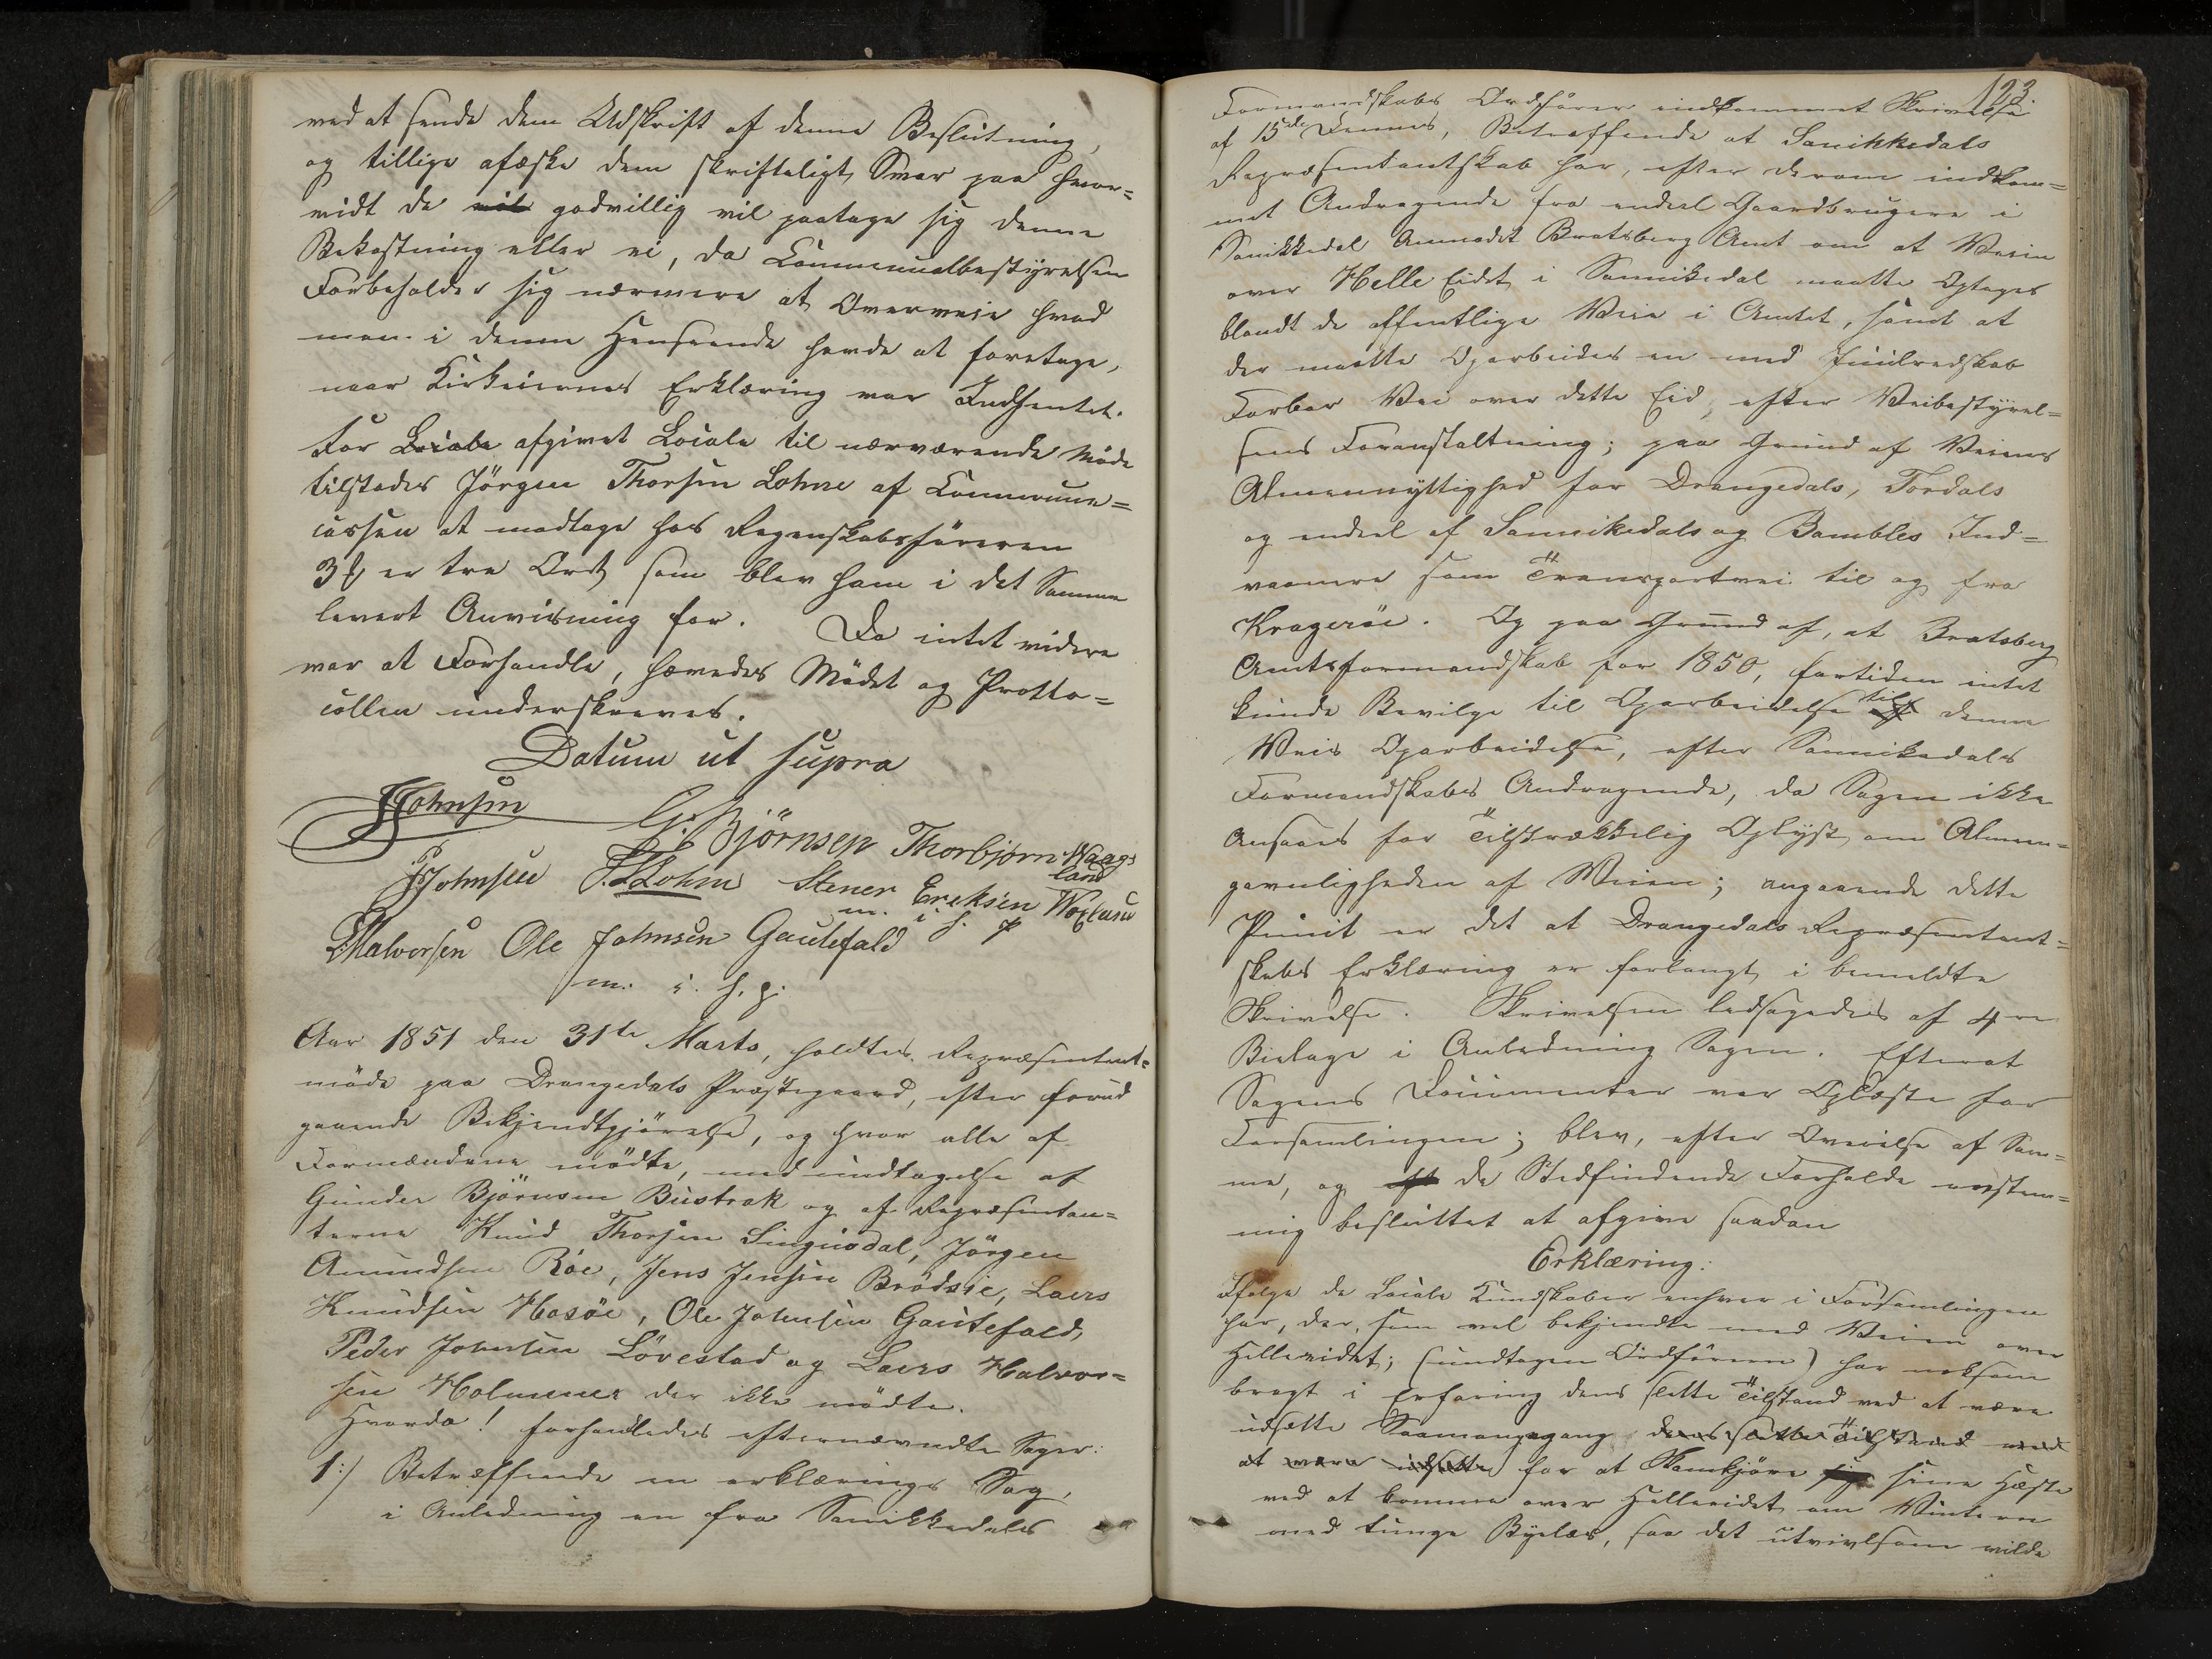 ved at sende dem Udskrift af denne Beslutning,
og tillige afæske dem skrifteligt Svar paa hvor=
vidt de vil godvillig vil paatage sig denne
Bekostning eller ei, da Communalbestyrelsen
Forbeholder sig nærmere at Overveie hvad
man i denne Henseende havde at foretage,
naar Kirkeiernes Erklæring var Indhentet.
For Locale afgivet Locale til nærværende Møde
tilstodes Jörgen Thorsen Lohne af Commune=
cassen at modtage hos Regnskabsföreren
3 er tre Ort som blev ham i det Samme
levert Anvisning for. Da intet videre
var at Forhandle, hævedes Mödet og Protto=
collen underskreves.
Datum ut supra
JJohnsen
G. Björnsen Thorbjörn Waags
land
JJohnsen J.TLohne Stener Ereksen Woxlan
m. i. h. p
LHalvorsen Ole Johnsen Gautefald
m. i. h. p.
Aar 1851 den 31te Marts, holdtes Repræsentant=
möde paa Drangedals Præstegaard, efter forud
gaaende Bekjendtgjörelse, og hvor alle af
Formændene mödte, med undtagelse af
Gunder Björnsen Bustrak og af Repræsentan=
terne Knud Thorsen Lingusdal, Jörgen
Amundsen Röe, Jens Jensen Brödsie, Laers
Knudsen Hosöe, Ole Johnsen Gautefald,
Peder Johnsen Lövestad og Laers Halvor=
sen Holmene der ikke mödte.
Hvorda! forhandledes efternævndte Sager:
1:/ Betræffende en erklærings Sag,
i Anledning en fra Sanikkedals
123.
Formandskabs Ordförer indkommet Skrivelse
af 15de Dennes, Betræffende at Sanikkedals
Repræsentantskab har, efter derom indkom=
met Andragende fra endeel Gaardbrugere i
Sanikkedal Anmodet Bratsberg Amt om at Veien
over Helle Eidet i Sannikedal maatte Optages
blandt de offentlige Veie i Amtet, samt at
der maatte Oparbeides en med Hjulredskab
Farbar Vei over dette Eid, efter Veibestyrel=
sens Foranstaltning; paa Grund af Veiens
Almennyttighed for Drangedals, Tördals
og endeel af Sannikedals og Bambles Ind=
vaanere som Transportvei til og fra
Kragerøe. Og paa Grund af, at Bratsberg
Amtsformandskab for 1850, fortiden intet
kunde Bevilge til Oparbeidelse af til denne
Veis Oparbeidelse, efter Sannikedals
Formandskabs Andragende, da Sagen ikke
Ansaaes for Tilstrækkelig Oplyst om Almeen=
gavnligheden af Veien; angaaende dette
Punct er det at Drangedals Repræsentant=
skabs Erklæring er forlangt i bemeldte
Skrivelse. Skrivelsen ledsagedes af 4re
Bielage i Anledning Sagen. Efterat
Sagens Documenter var Oplæste for
Forsamlingen; blev, efter Overeielse af Sam=
me, og eft de Stedfindende Forholde eenstem=
mig besluttet at afgive saadan
Erklæring:
Ifølge de Locale Kundskaber enhver i Forsamlingen
har, der, som vel bekjendte med Veien over
Helleeidet; (undtagen Ordföreren) har noksom
bragt i Erfaring dens slette Tilstand ved at være
udsatte Saamangegang dens slette Tilstand ved
at være udsatte for at Skamkjöre sig sine Heste
ved at komme over Helleeidet om Vinteren
med tunge Byelæs, saa det utvivlsom vilde